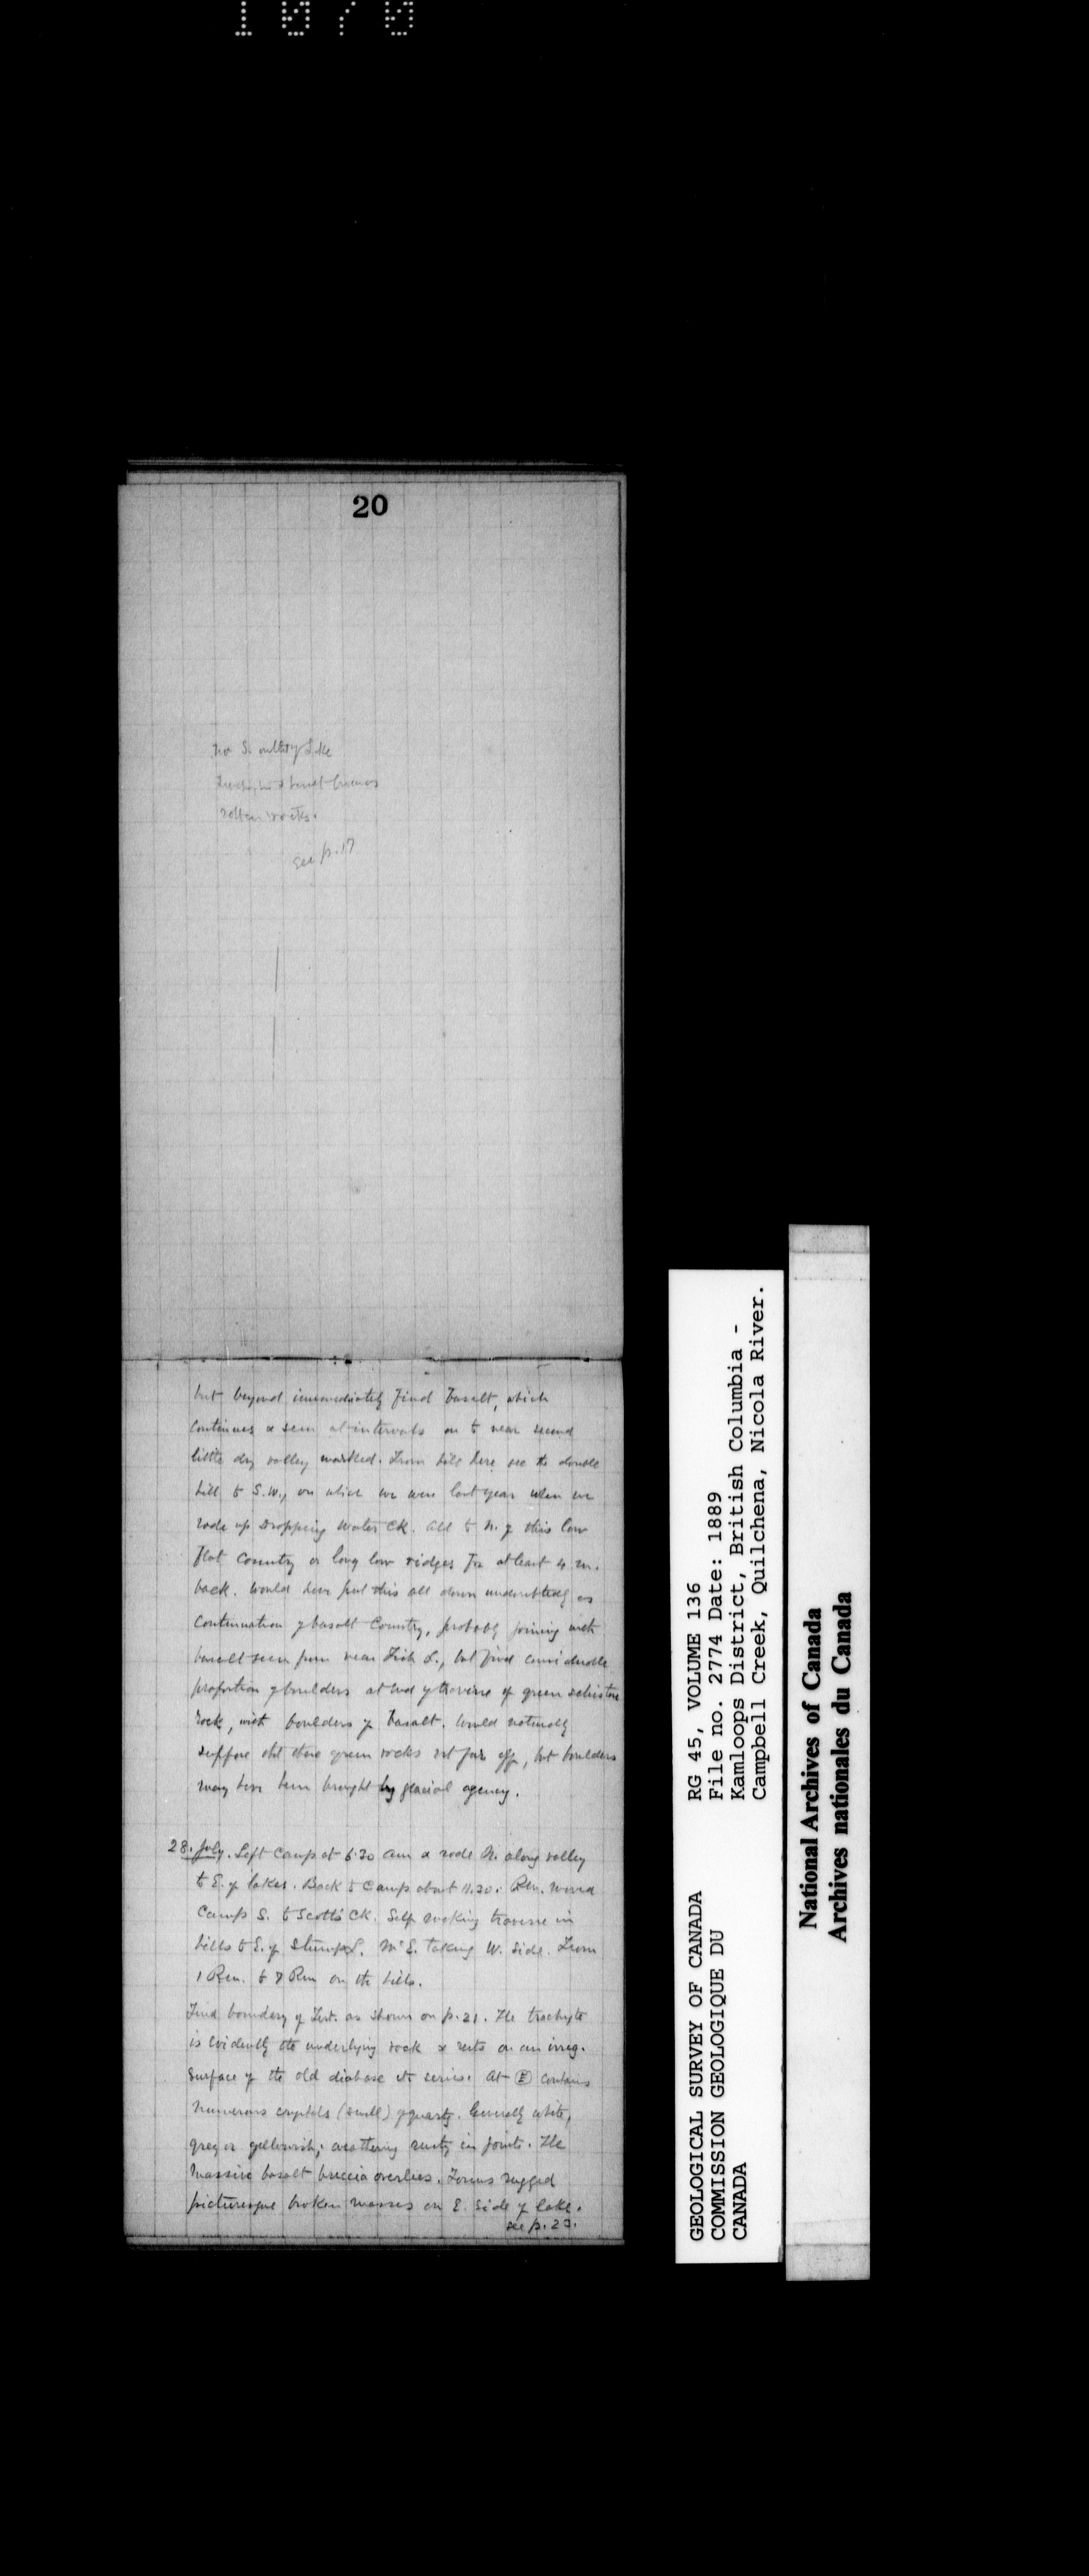 1070
20
no S. outlet of Lake
rotten rocks.
see p. 17
but beyond immediately find basalt, which
continues & seen at intervals on to near second
little dry valley marked. From hill here see the double
hill to S.W., on which we were last year when we
rode up Dropping Water Ck. All to N. of this low
flat country or long low ridges for at least 4 m.
back. Would have put this all down undoubtedly as
continuation of basalt country, probably joining with
basalt seen from near Fish L., but find considerable
proportion of boulders at end of traverse of green schistose
rock, with boulders of basalt. Would naturally
suppose that these green rocks not far off, but boulders
may have been brought by glacial agency.
28. July. Left Camp at 6.30 am & rode N. along valley
to E. of lakes. Back to Camp about 11.30. Rem. moved
Camp S. to Scott's Ck. Self making traverse in
hills to E. of Stump L. McE. taking W. side. From
1 Rem. to 7 Rem on the hills.
Find boundary of Tert. as shown on p. 21. The trachyte
is evidently the underlying rock & rests on an irreg.
surface of the old diabase etc series. At E contains
numerous crystals (small) of quartz. Generally white,
grey or yellowish, weathering rusty in joints. The
massive basalt breccia overlies. Forms rugged
picturesque broken masses on E. side of lake.
see p. 23.
GEOLOGICAL SURVEY OF CANADA
COMMISSION GEOLOGIQUE DU
CANADA
RG 45, VOLUME 136
File no. 2774 Date: 1889
Kamloops District, British Columbia -
Campbell Creek, Quilchena, Nicola River.
National Archives of Canada
Archives nationales du Canada